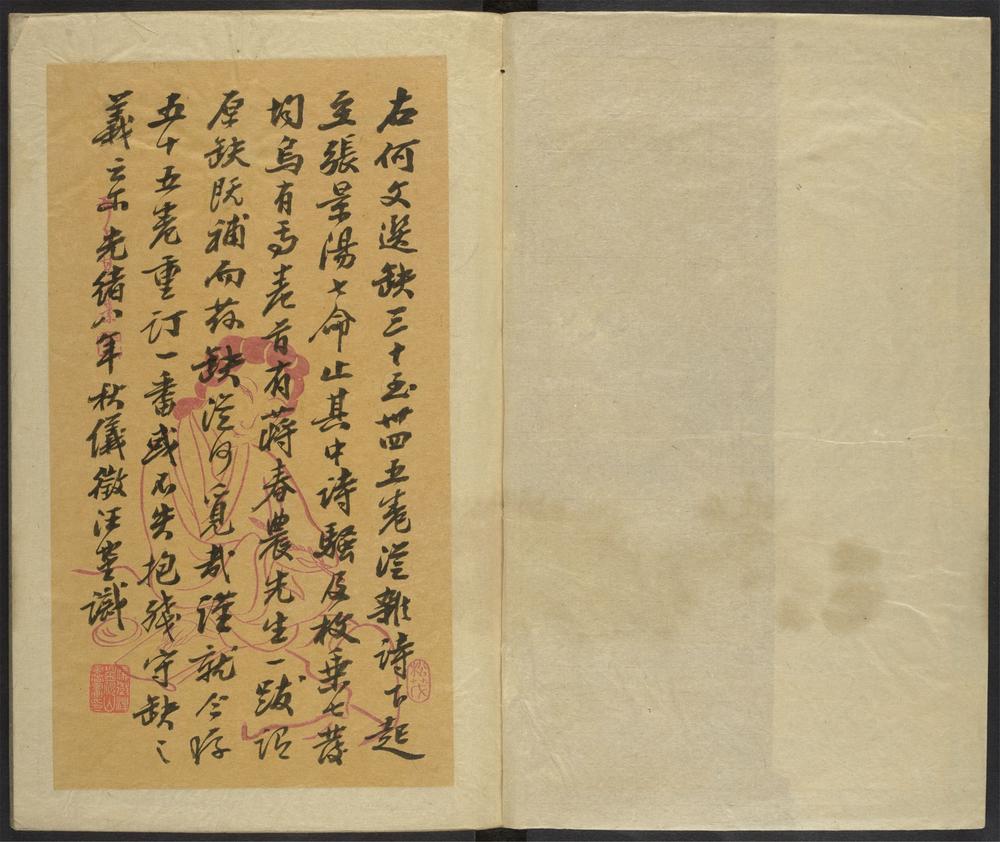 右何文選缺三十至卅四五卷從雜詩下起
至張景陽七命止其中詩騷及枚乘七發
均烏有焉卷首有蔣春農先生一跋謂
原缺既補而茲缺從何覓哉謹就今存
五十五卷重訂一番或不失抱殘守缺之
義云尔光緒八年秋儀徵汪鋆識
松茂